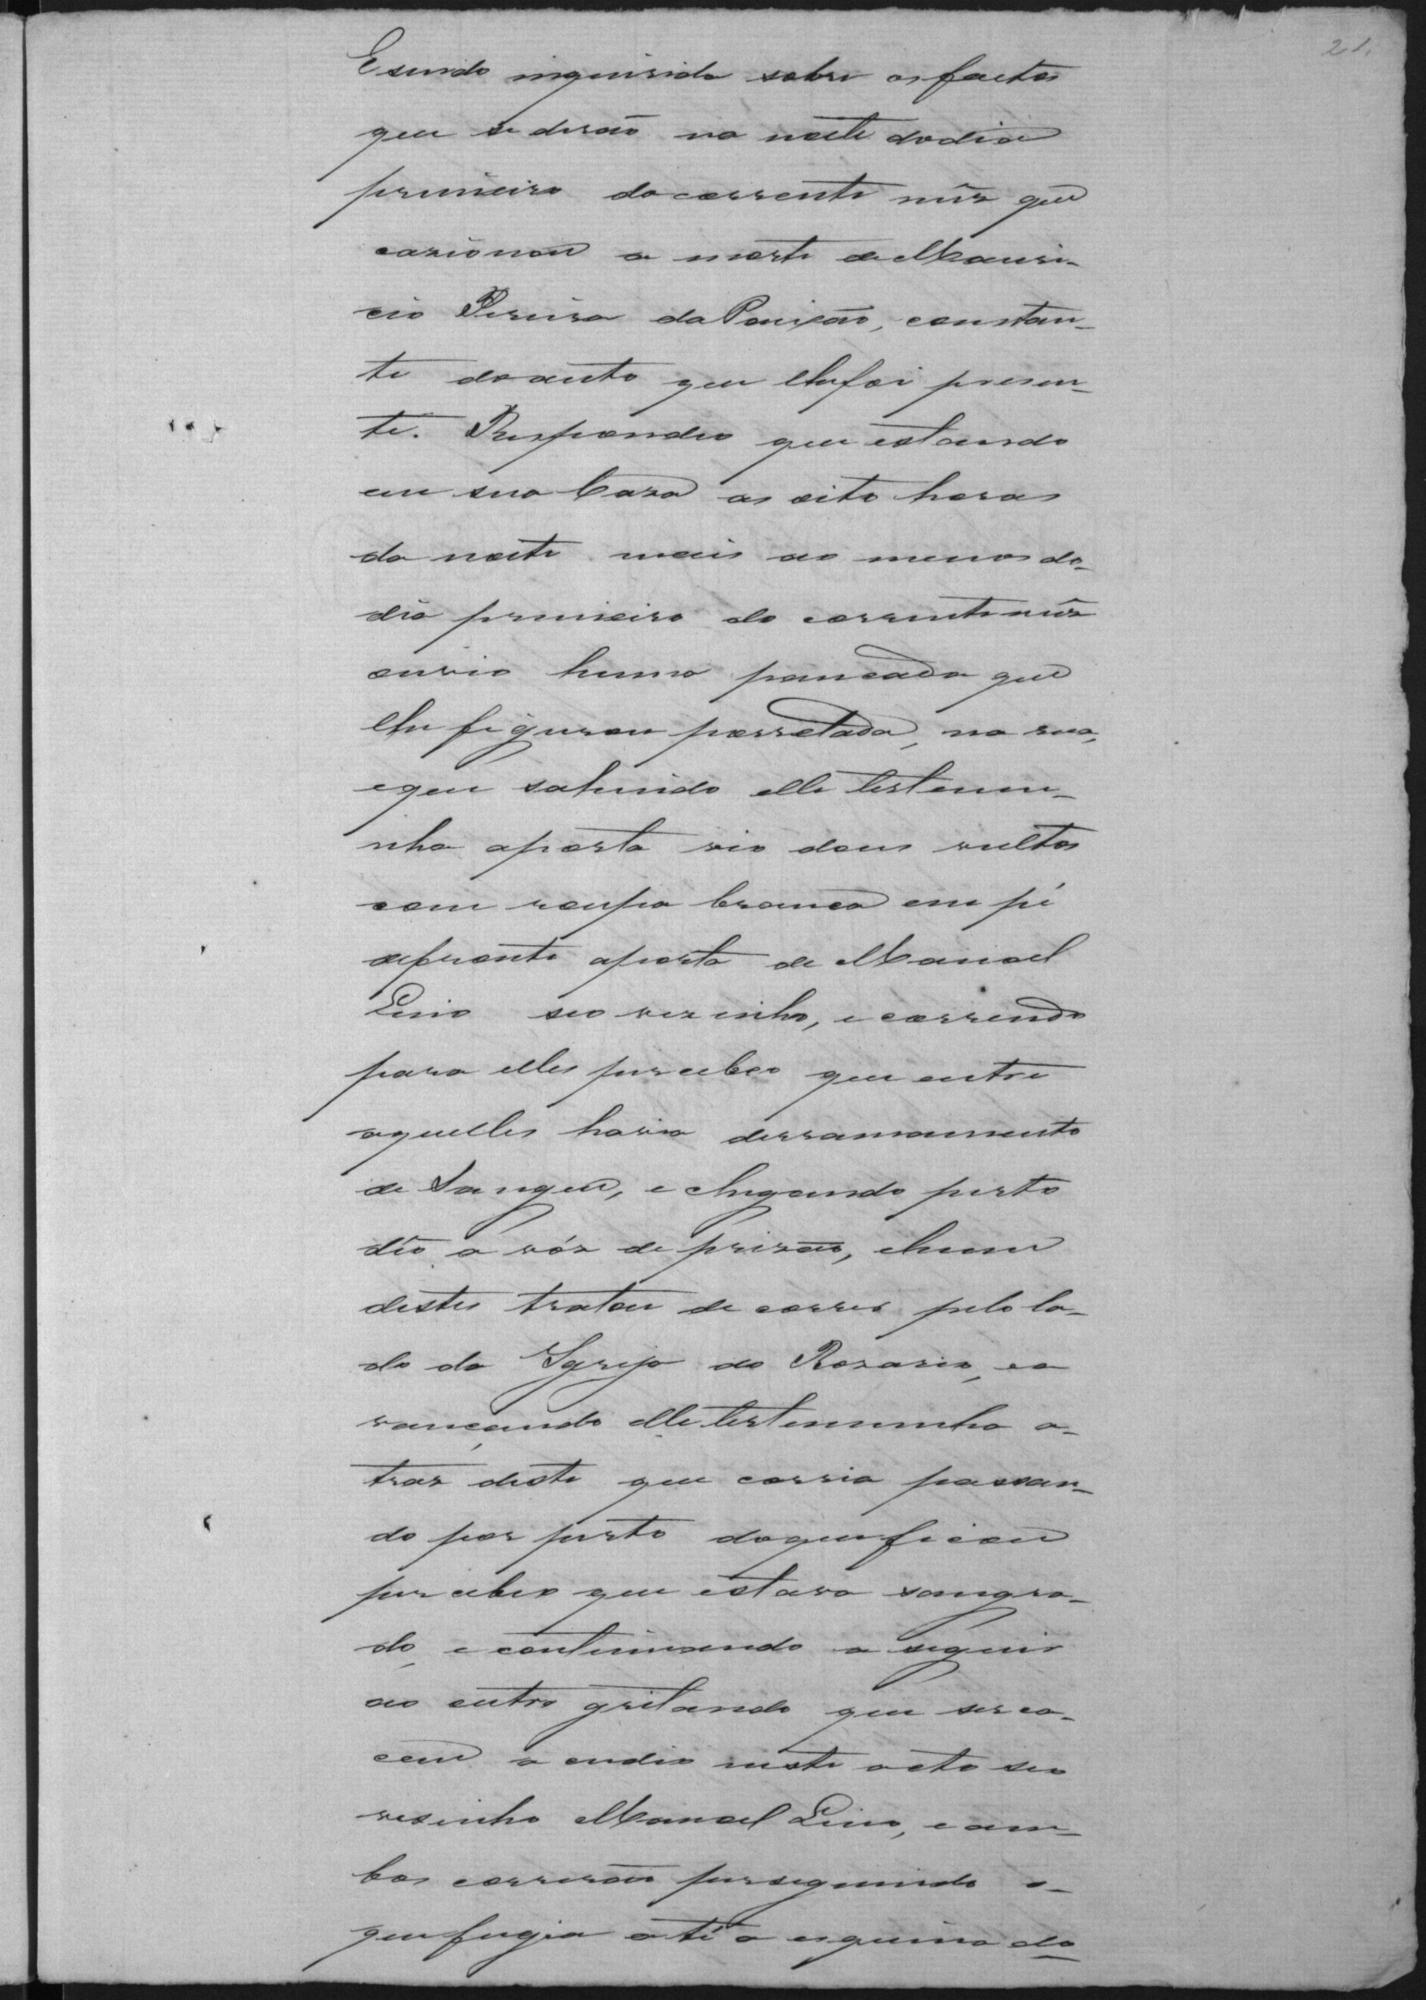 21.
E sendo inquirido sobre os factos
que se derão na noite do dia
primeiro do corrente mês que
cazionou a morte de Mauri-
cio Pereira da Paixão, constan-
te do auto que lhe foi presen-
te. Respondeo que estando
em sua Caza as oito horas
da noite mais ao menos do
dia primeiro do corrente mês
ouvio huma pancada que
lhe figurou porretada, na rua,
e que sahindo elle testemu-
nha a porta vio dous vultos
com roupa branca em pé
defronte a porta de Manoel
Lino seo vezinho, e correndo
para elles percebeo que entre
aquelles havia derramamento
de Sangue, e chegando perto
dêo a vóz de prizão, e hum
destes tratou de correr pelo la-
do da Igreja do Rozario, e a
vançando elle testemunha a-
traz deste que corria passan-
do por perto do que ficou
percebeo que estava sangra-
do, e continuando a seguir
ao outro gritando que cerca-
cem acudio neste acto seo
vesinho Manoel Lino, e am-
bos correrão perseguindo o
que fugia até a esquina da